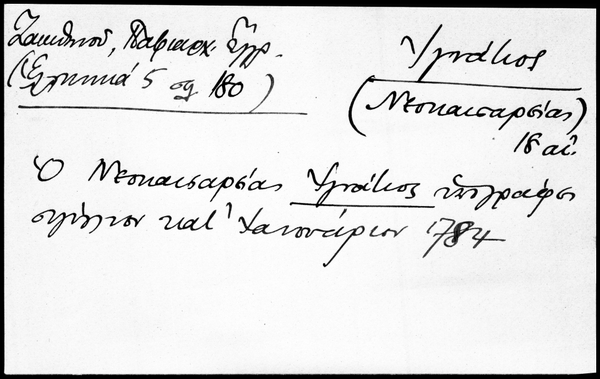 Ζακυθηνοῦ, Πατριαρχ. Ἔγγρ.
(Ἑλληνικά 5 σελ 180)
Ἰγνάτιος
(Νεοκαισαρείας)
18 αἰ.
Ὁ Νεοκαισαρείας Ἰγνάτιος ὑπογράφει
σιγίλλιον κατ' Ἰανουάριον 1784